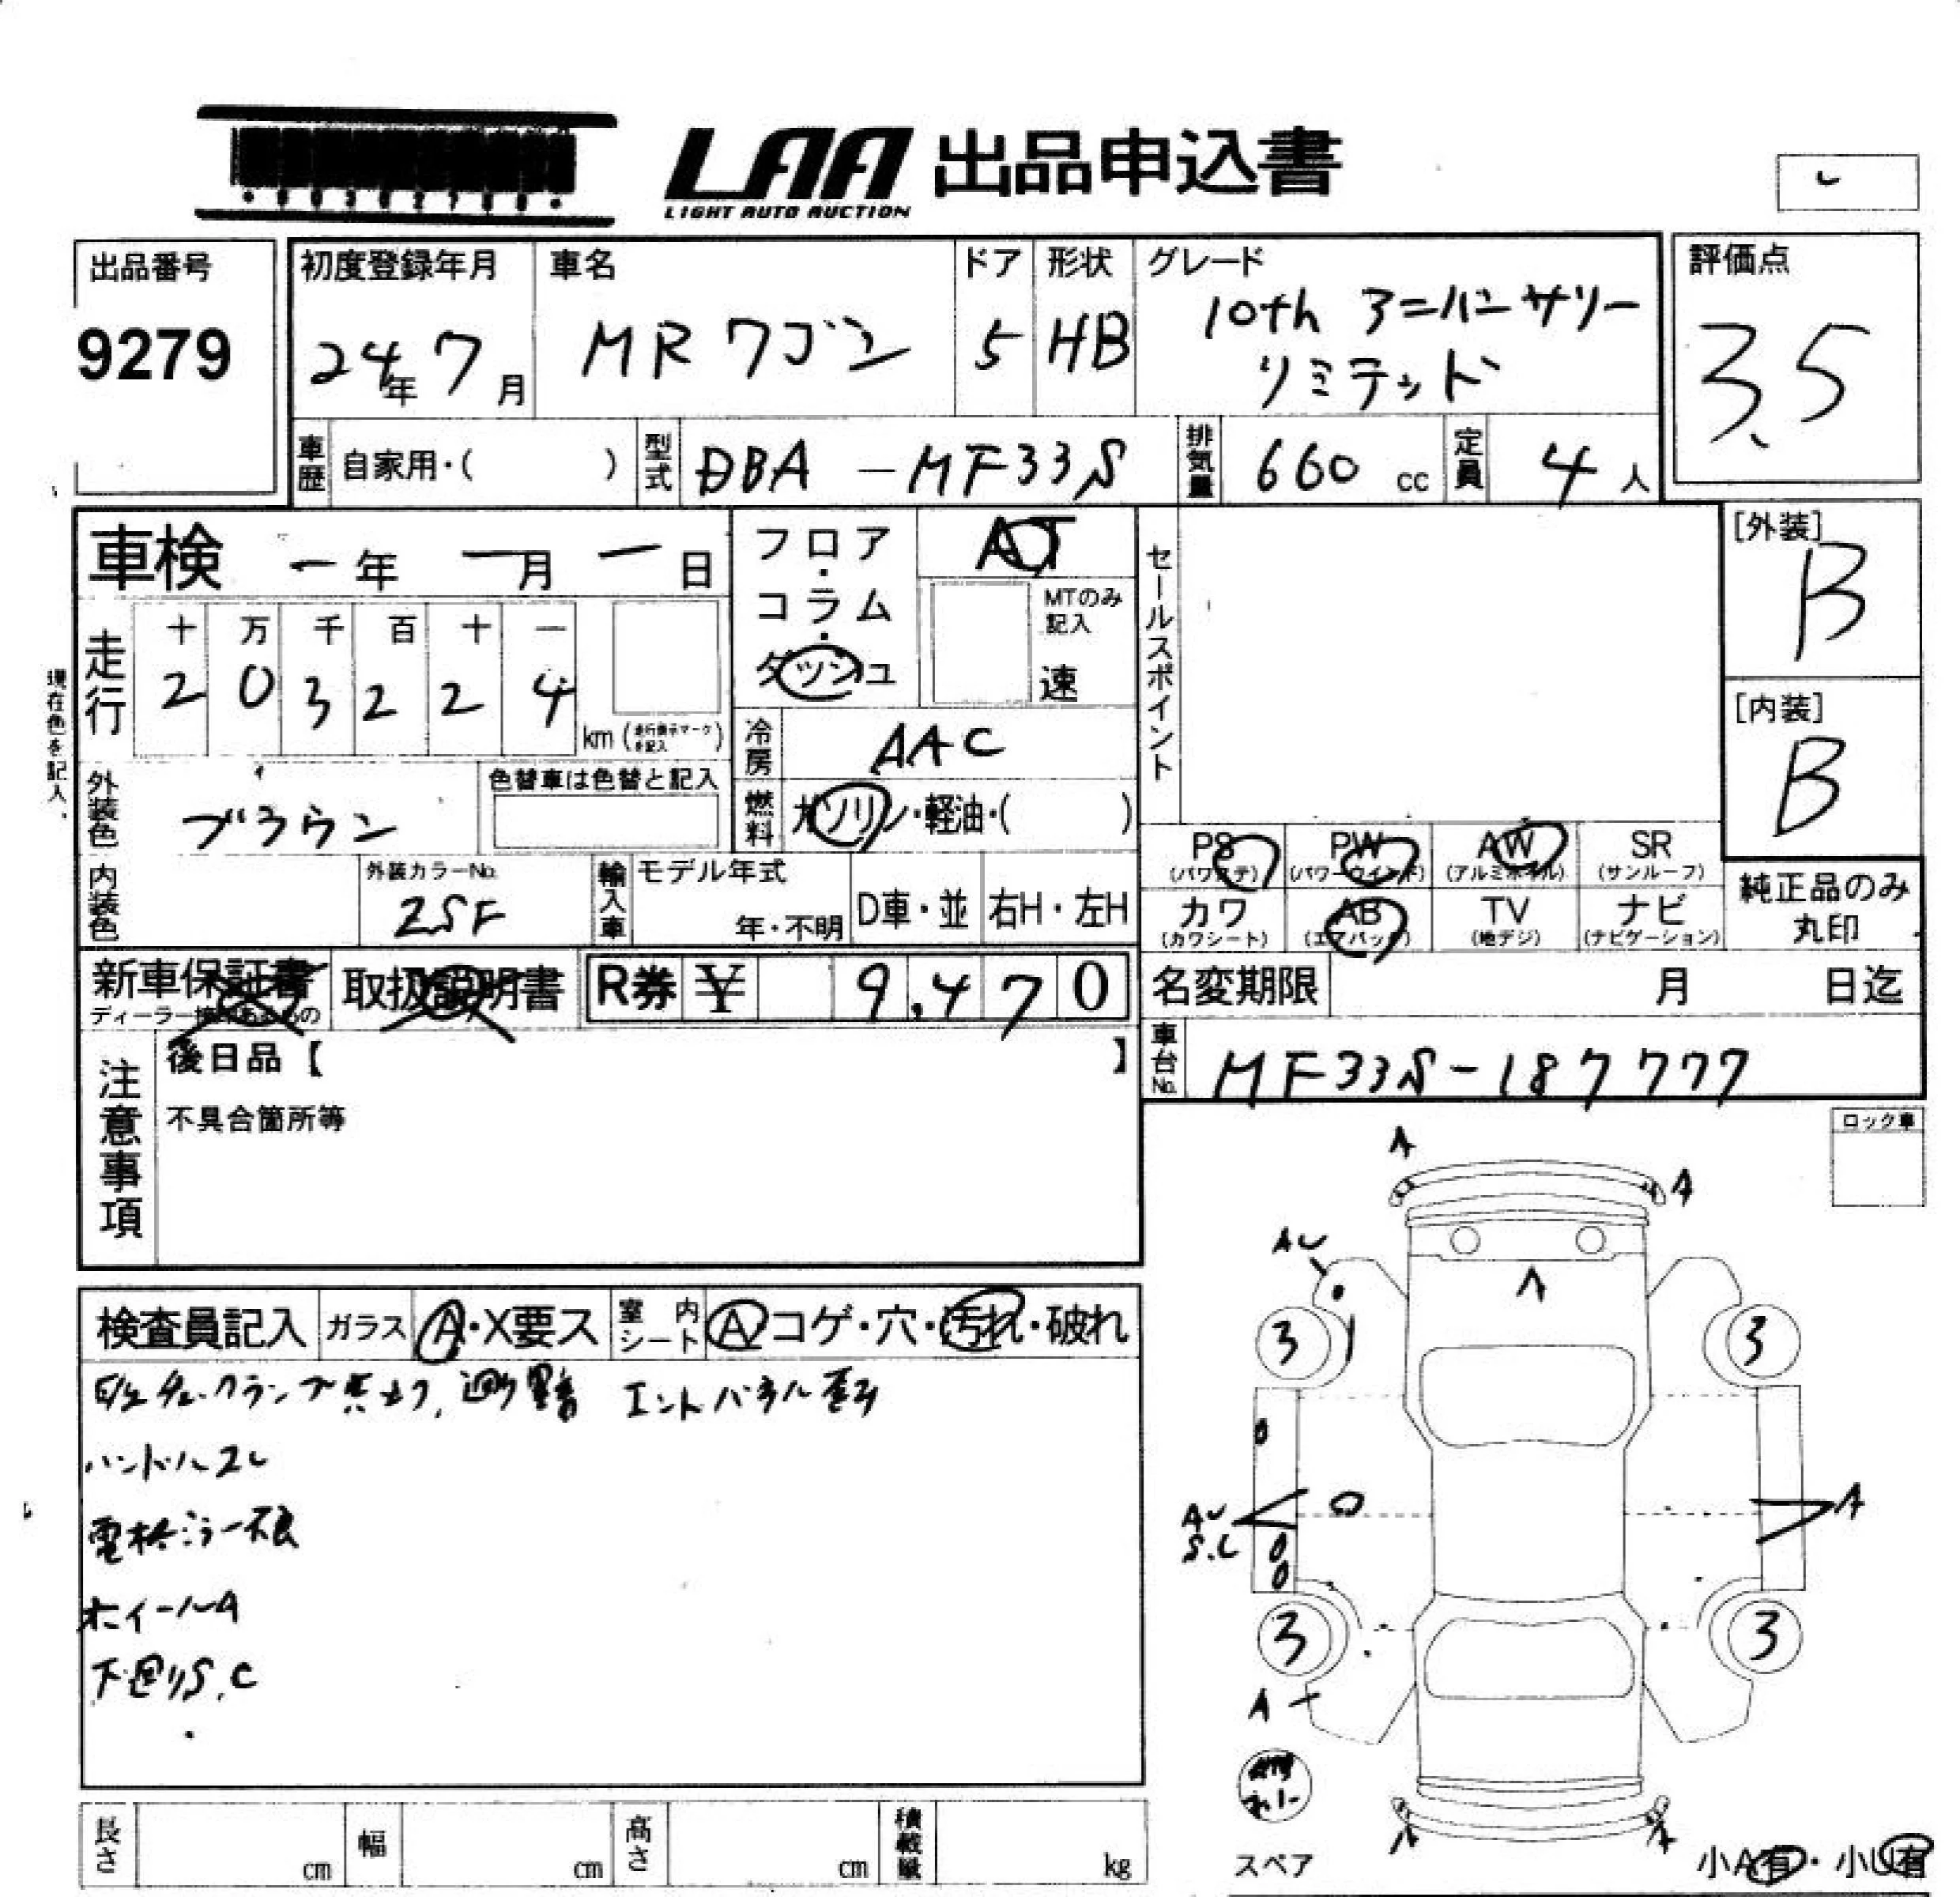 LAA 出品申込書
LIGHT AUTO AUCTION
出品番号
9279
初度登録年月
24年7月
車名
MRワゴン
ドア
5
形状
HB
グレード
10th アニバーサリー
リミテッド
評価点
3.5
車歴 自家用・( )
型式 DBA-MF33S
排気量 660 cc
定員 4 人
車検 ー年 ー月 ー日
フロア・コラム・ダッシュ
AT
MTのみ記入
速
セールスポイント
[外装]
B
[内装]
B
走行
十 万 千 百 十 一
2 0 3 2 2 4
km (走行表示マークを記入)
現在色を記入。
冷房 AAC
燃料 ガソリン・軽油・( )
外装色 ブラウン
色替車は色替と記入
内装色
外装カラーNo.
ZSF
輸入車
モデル年式
年・不明
D車・並
右H・左H
PS (パワステ)
PW (パワーウインド)
AW (アルミホイル)
SR (サンルーフ)
カワ (カワシート)
AB (エアバッグ)
TV (地デジ)
ナビ (ナビゲーション)
純正品のみ
丸印
新車保証書
取扱説明書
R券 ¥ 9,470
名変期限 月 日迄
車台No. MF33S-187777
注意事項
後日品【 】
不具合箇所等
ロック車
検査員記入
ガラス A・X要ス
室内シート A コゲ・穴・汚れ・破れ
ハンドルスレ
電格ミラー不良
ホイールA
下回りS.C
A
A
AU
A
3
3
AU
S.C
A
3
3
A
A
A
スペア
小A有・小U有
長さ cm
幅 cm
高さ cm
積載量 kg